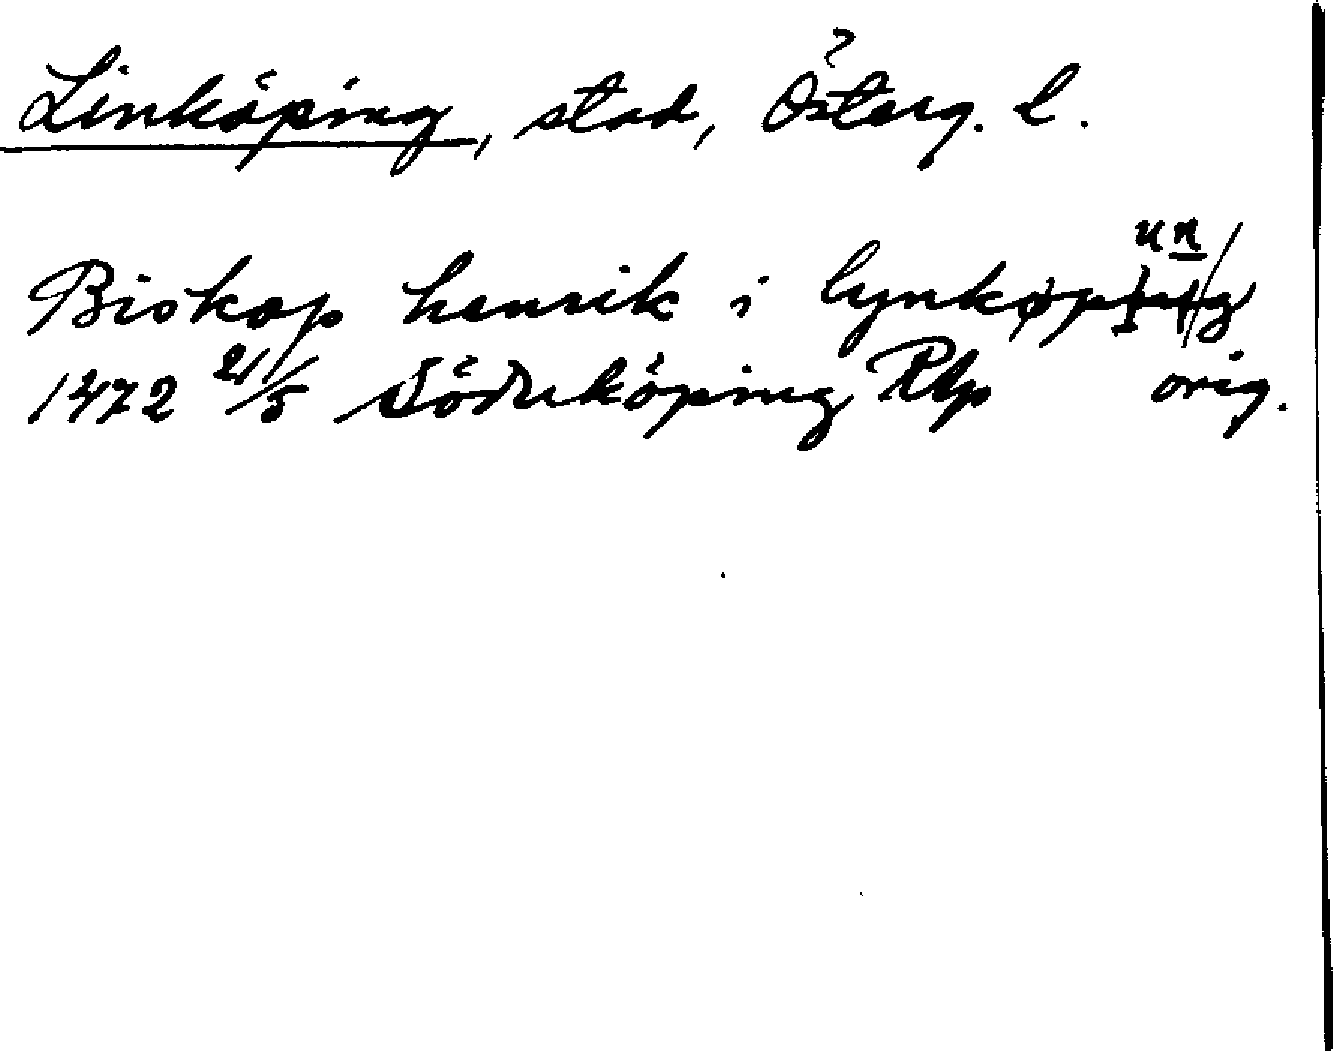 Linköping, stad, Österg. l.
un
Biskop henrik i lynkøping
1472 21/5 Söderköping Rhp orig.